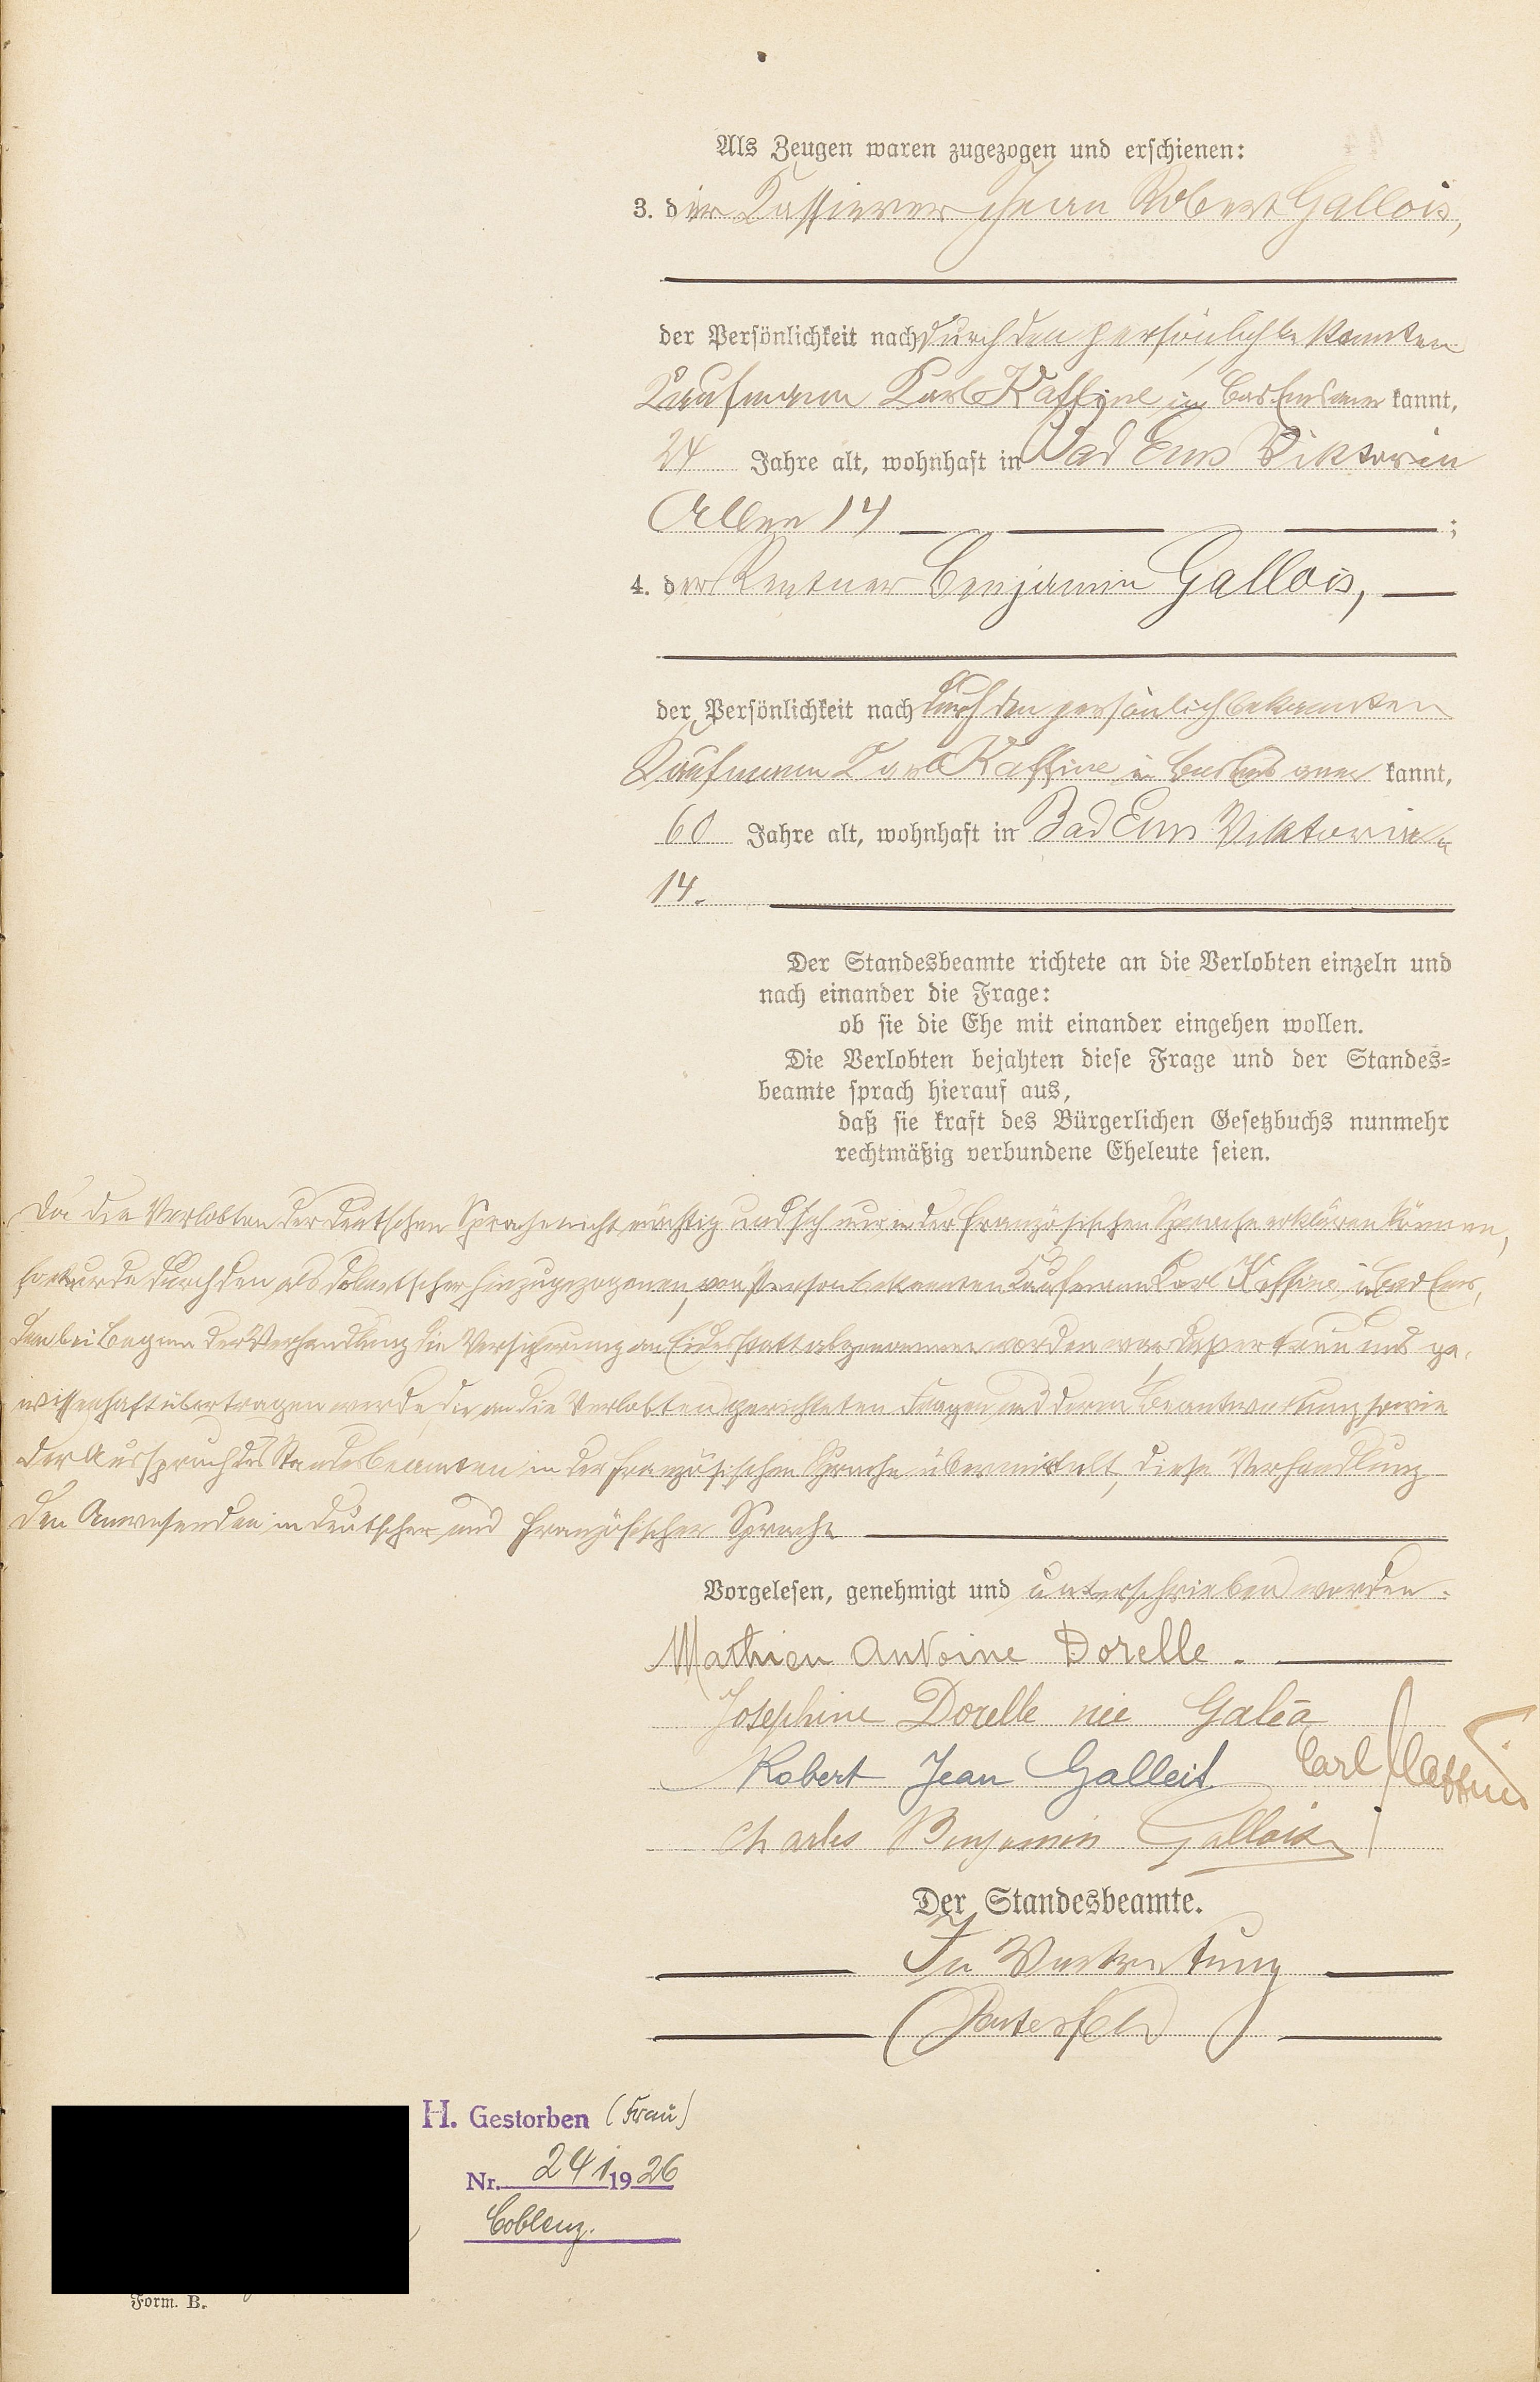 Als Zeugen waren zugezogen und erschienen:
3. der Kassierer Jean Robert Gallois,
der Persönlichkeit nach durch den persönlich bekannten
Kaufmann Karl Kaffine in Bad Ems aner kannt,
24 Jahre alt, wohnhaft in Bad Ems Viktoria
Allee 14 ;
4. der Rentner Benjamin Gallois,
der Persönlichkeit nach durch den persönlich bekannten
Kaufmann Karl Kaffine in Bad Ems aner kannt,
60 Jahre alt, wohnhaft in Bad Ems Viktoria
14.
Der Standesbeamte richtete an die Verlobten einzeln und
nach einander die Frage:
ob sie die Ehe mit einander eingehen wollen.
Die Verlobten bejahten diese Frage und der Standes-
beamte sprach hierauf aus,
daß sie kraft des Bürgerlichen Gesetzbuchs nunmehr
rechtmäßig verbundene Eheleute seien.
Da die Verlobten der deutschen Sprache nicht mächtig und sich nur in der französischen Sprache erklären können,
so wurde durch den als Dolmetscher hinzugezogenen, von Person bekannten Kaufmann Karl Kaffine in Bad Ems,
dem bei Beginn der Verhandlung die Versicherung an Eidesstatt abgenommen worden war, daß er treu und ge-
wissenhaft übertragen werde, die an die Verlobten gerichteten Fragen und deren Beantwortung sowie
der Ausspruch des Standesbeamten in der französischen Sprache übermittelt, diese Verhandlung
den Anwesenden in deutscher und französischer Sprache
Vorgelesen, genehmigt und unterschrieben worden.
Mathieu Antoine Dorelle.
Josephine Dorelle née Galéa
Robert Jean Gallois Carl Kaffine
Charles Benjamin Gallois
Der Standesbeamte.
In Vertretung
H. Gestorben (Frau)
Nr. 241 1926
Coblenz.
Form. B.